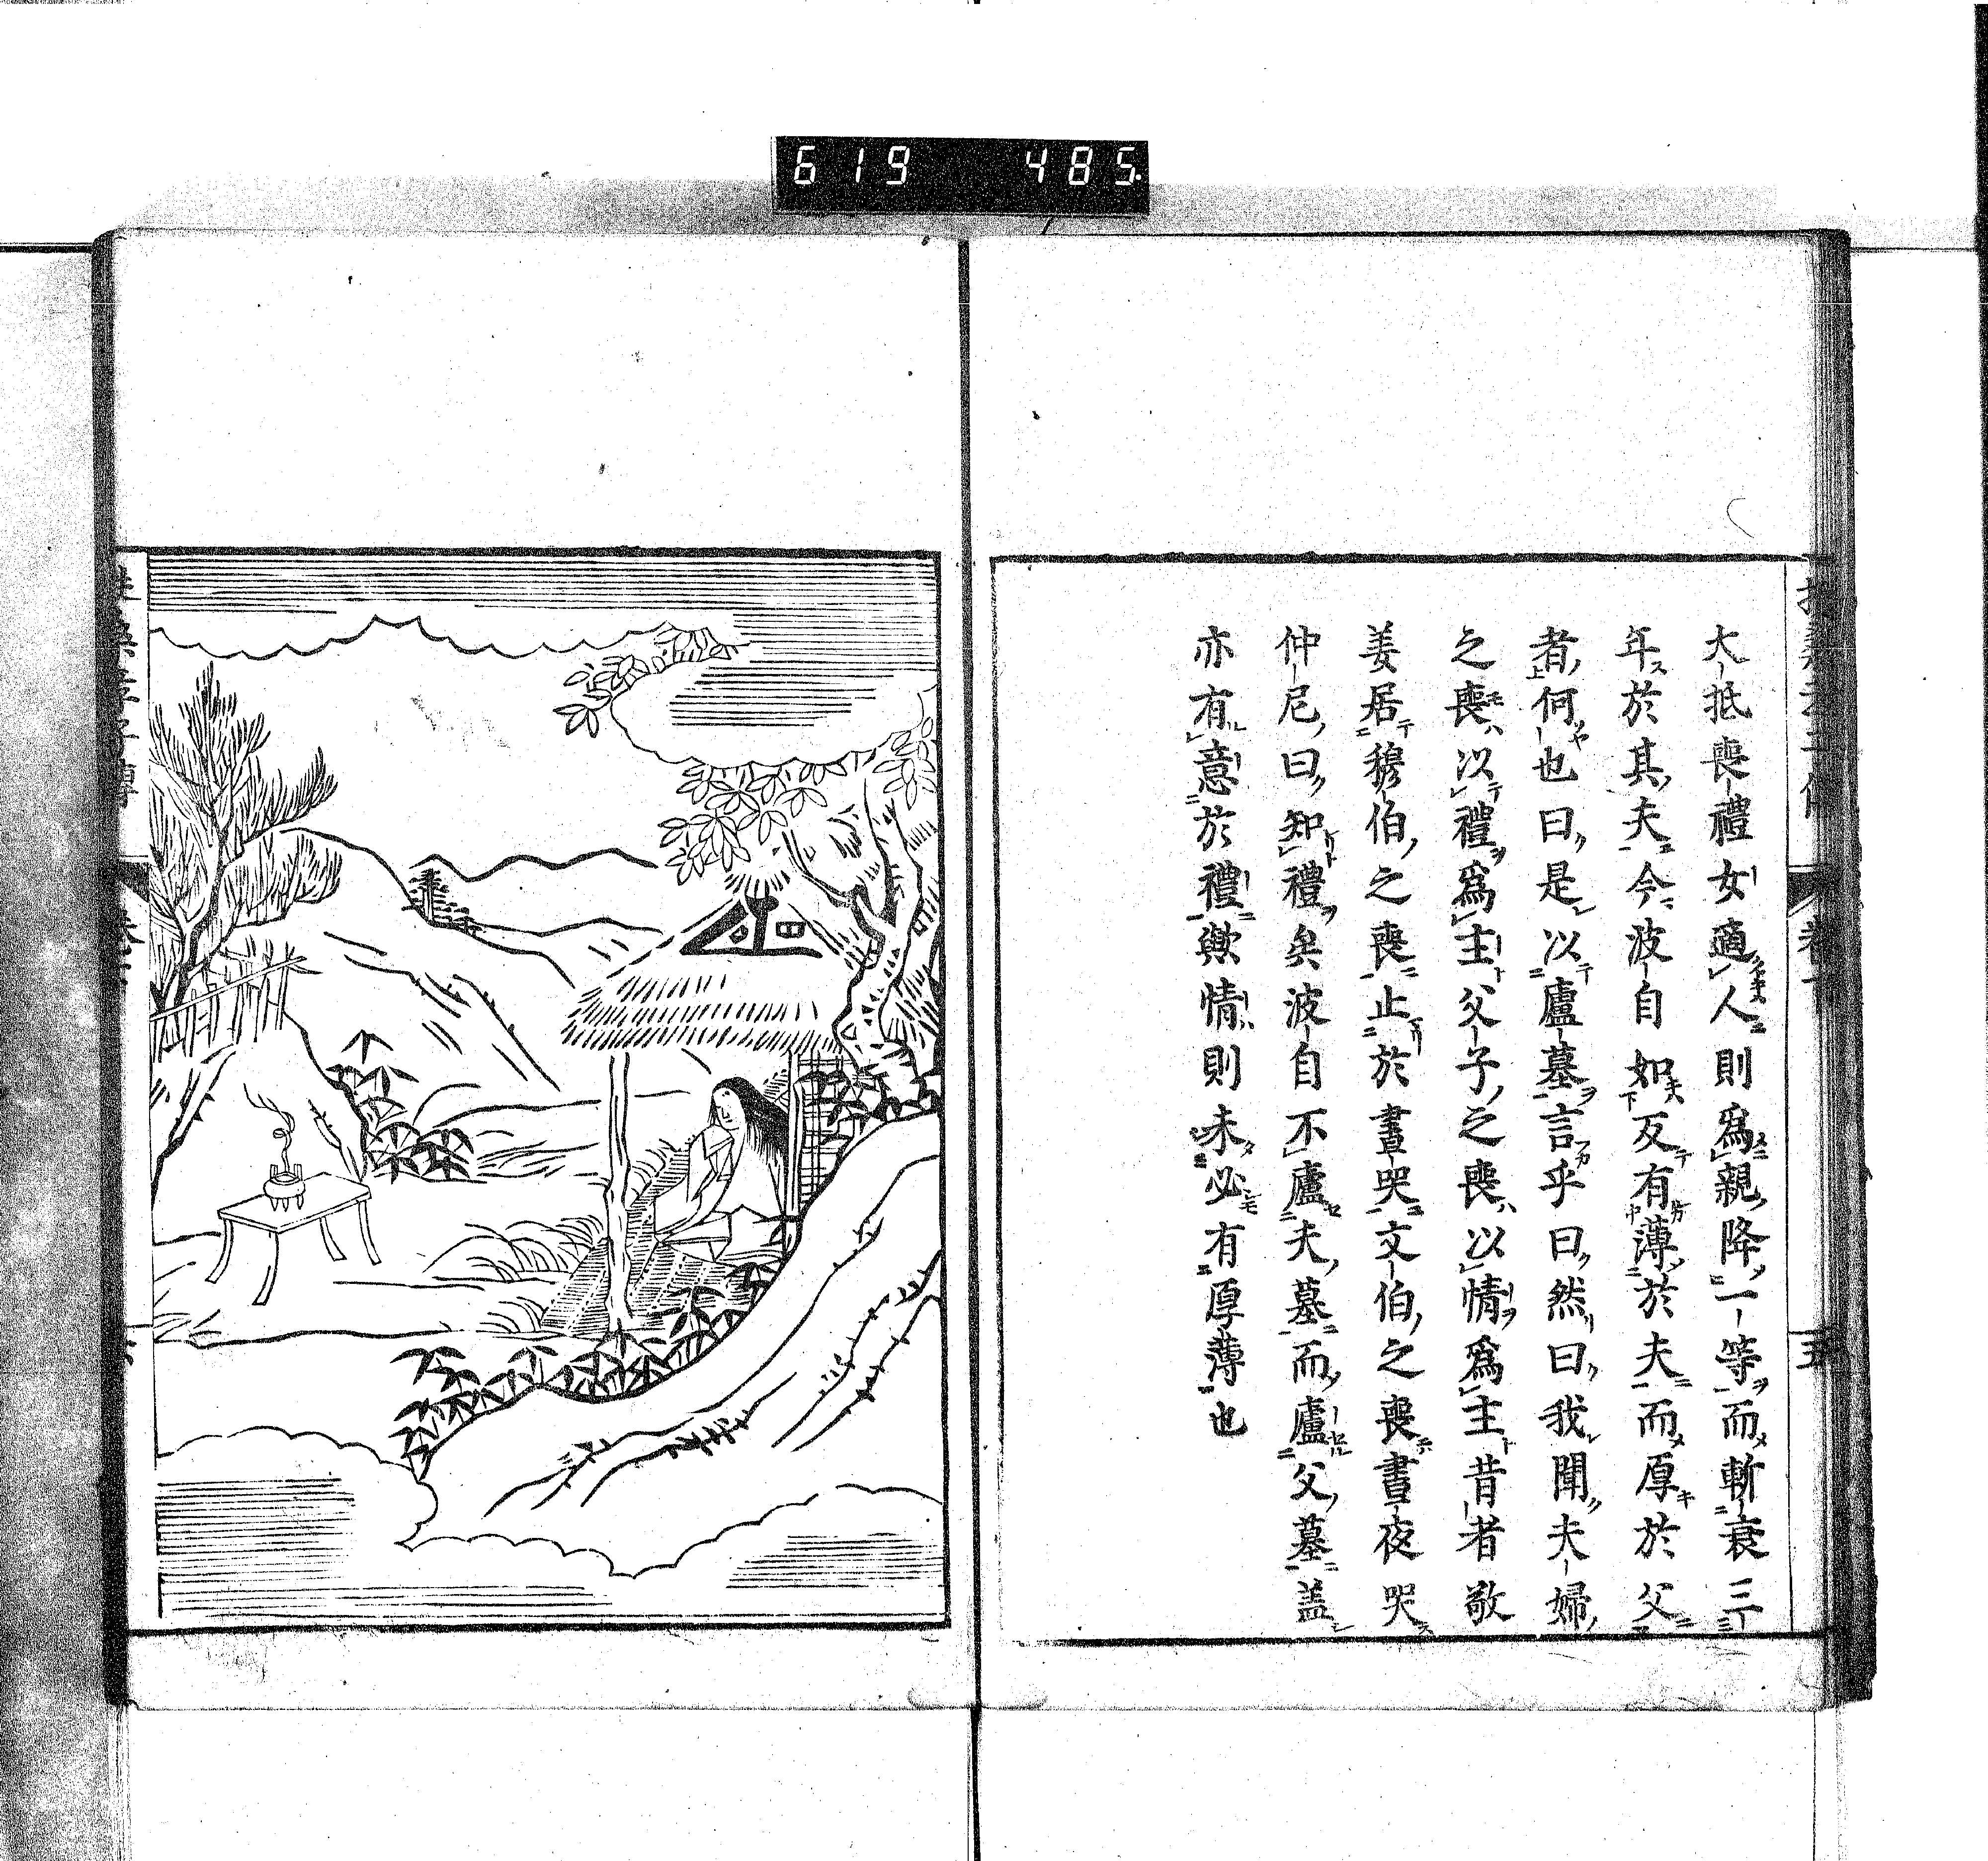 619 485
大抵喪禮女適人則爲親降一等而斬衰三
年於其夫今波自如反有薄於夫而厚於父
者何也曰是以廬墓言乎曰然曰我聞夫婦
之喪以禮爲主父子之喪以情爲主昔者敬
姜居穆伯之喪止於晝哭文伯之喪晝夜哭
仲尼曰知禮矣波自不廬夫墓而廬父墓盖
亦有意於禮歟情則未必有厚薄也